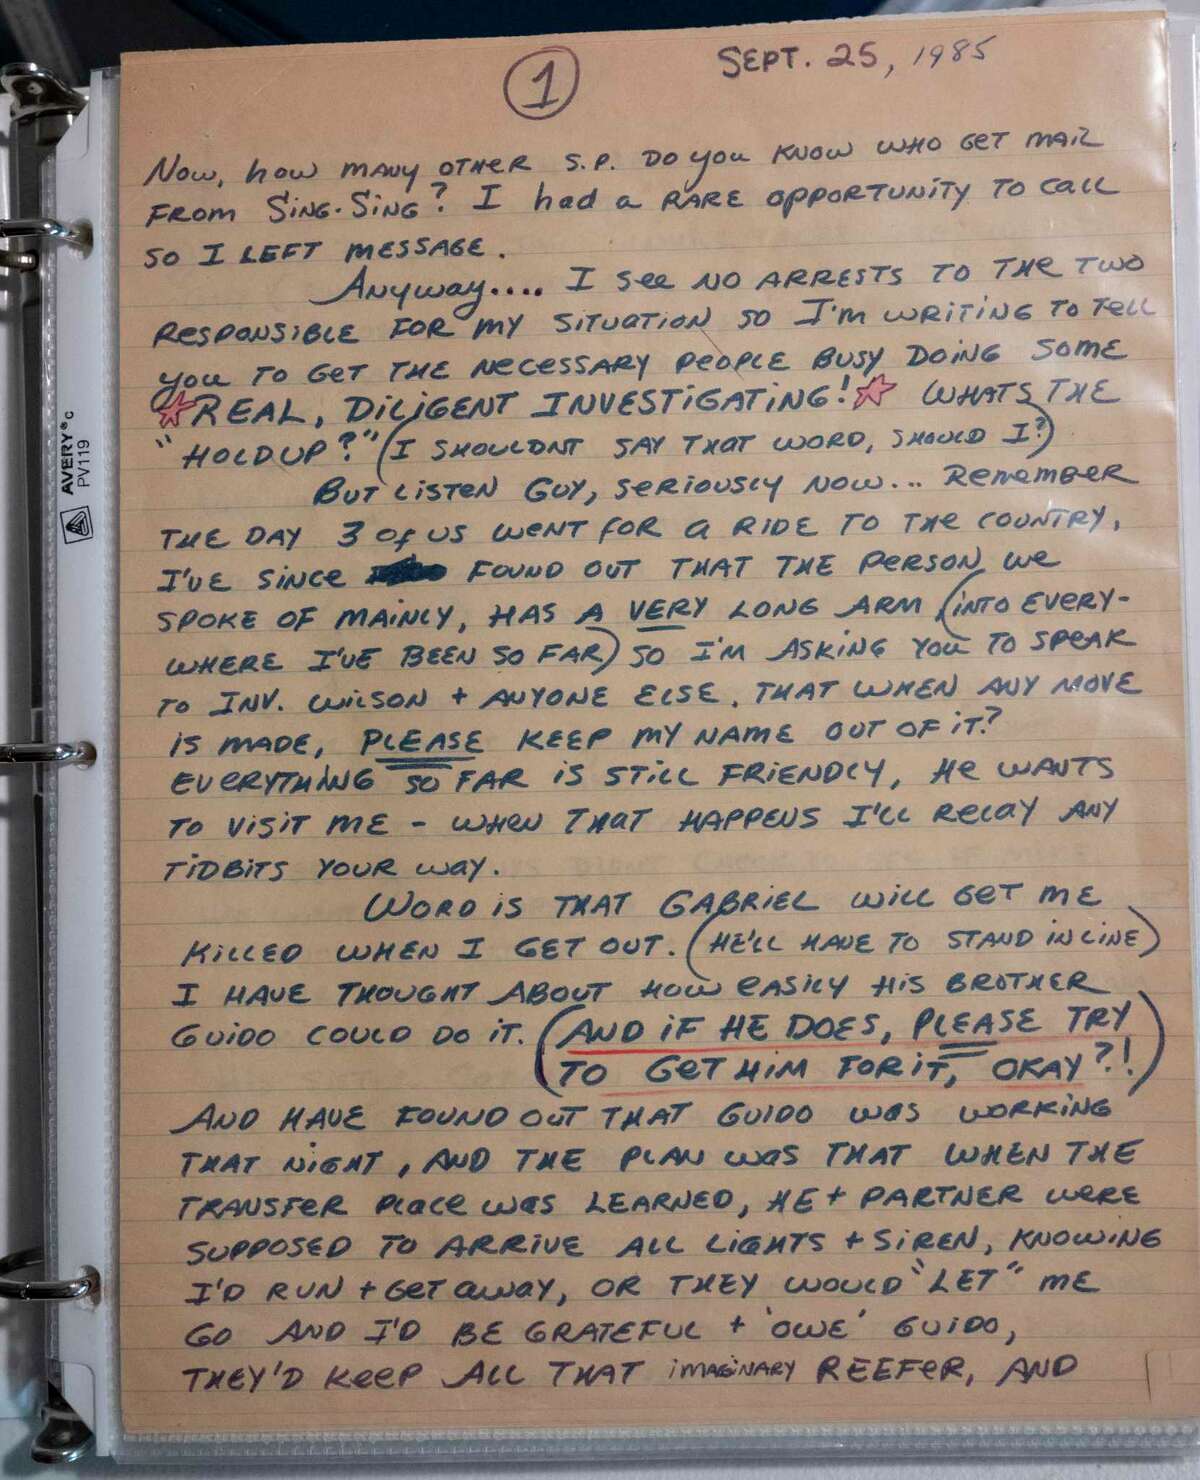 1
SEPT. 25, 1985
NOW, HOW MANY OTHER S.P. DO YOU KNOW WHO GET MAIL
FROM SING-SING? I HAD A RARE OPPORTUNITY TO CALL
SO I LEFT MESSAGE.
ANYWAY.... I SEE NO ARRESTS TO THE TWO
RESPONSIBLE FOR MY SITUATION SO I'M WRITING TO TELL
YOU TO GET THE NECESSARY PEOPLE BUSY DOING SOME
☆REAL, DILIGENT INVESTIGATING!☆ WHATS THE
"HOLDUP?" (I SHOULDNT SAY THAT WORD, SHOULD I?)
BUT LISTEN GUY, SERIOUSLY NOW... REMEMBER
THE DAY 3 OF US WENT FOR A RIDE TO THE COUNTRY,
I'VE SINCE FOUND OUT THAT THE PERSON WE
SPOKE OF MAINLY, HAS A VERY LONG ARM (INTO EVERY-
WHERE I'VE BEEN SO FAR) SO I'M ASKING YOU TO SPEAK
TO INV. WILSON + ANYONE ELSE, THAT WHEN ANY MOVE
IS MADE, PLEASE KEEP MY NAME OUT OF IT?
EVERYTHING SO FAR IS STILL FRIENDLY, HE WANTS
TO VISIT ME - WHEN THAT HAPPENS I'LL RELAY ANY
TIDBITS YOUR WAY.
WORD IS THAT GABRIEL WILL GET ME
KILLED WHEN I GET OUT. (HE'LL HAVE TO STAND IN LINE)
I HAVE THOUGHT ABOUT HOW EASILY HIS BROTHER
GUIDO COULD DO IT. (AND IF HE DOES, PLEASE TRY
TO GET HIM FOR IT, OKAY?!)
AND HAVE FOUND OUT THAT GUIDO WAS WORKING
THAT NIGHT, AND THE PLAN WAS THAT WHEN THE
TRANSFER PLACE WAS LEARNED, HE + PARTNER WERE
SUPPOSED TO ARRIVE ALL LIGHTS + SIREN, KNOWING
I'D RUN + GET AWAY, OR THEY WOULD "LET" ME
GO AND I'D BE GRATEFUL + 'OWE' GUIDO,
THEY'D KEEP ALL THAT IMAGINARY REEFER, AND
AVERY® C
PV119